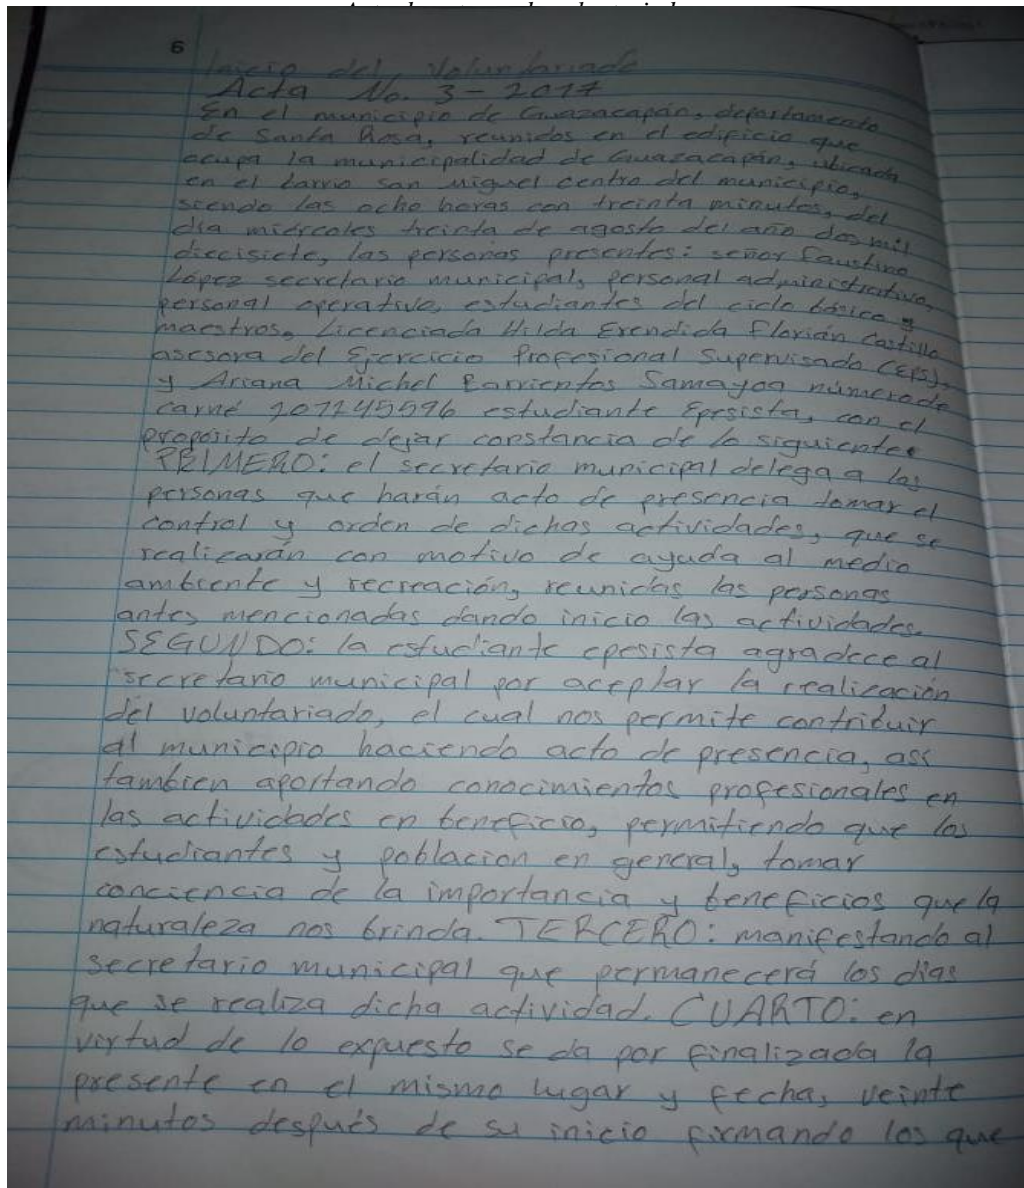 6
Inicio del Voluntariado
Acta No. 3-2017
En el municipio de Guazacapán, departamento
de Santa Rosa, reunidos en el edificio que
ocupa la municipalidad de Guazacapán, ubicada
en el barrio san Miguel centro del municipio,
siendo las ocho horas con treinta minutos, del
día miércoles treinta de agosto del año dos mil
diecisiete, las personas presentes: señor Faustino
López secretario municipal, personal administrativo,
personal operativo, estudiantes del ciclo básico y
maestros. Licenciada Hilda Erendida Florián Castillo
asesora del Ejercicio Profesional Supervisado (EPS).
y Ariana Michel Barrientos Samayoa número de
carné 201245596 estudiante Epesista, con el
proposito de dejar constancia de lo siguiente:
PRIMERO: el secretario municipal delega a las
personas que harán acto de presencia tomar el
control y orden de dichas actividades, que se
realizarán con motivo de ayuda al medio
ambiente y recreación, reunidas las personas
antes mencionadas dando inicio las actividades.
SEGUNDO: la estudiante epesista agradece al
secretario municipal por aceptar la realización
del voluntariado, el cual nos permite contribuir
al municipio haciendo acto de presencia, así
tambien aportando conocimientos profesionales en
las actividades en beneficio, permitiendo que los
estudiantes y poblacion en general, tomar
conciencia de la importancia y beneficios que la
naturaleza nos brinda. TERCERO: manifestando al
secretario municipal que permanecerá los dias
que se realiza dicha actividad. CUARTO: en
virtud de lo expuesto se da por finalizada la
presente en el mismo lugar y fecha, veinte
minutos después de su inicio firmando los que